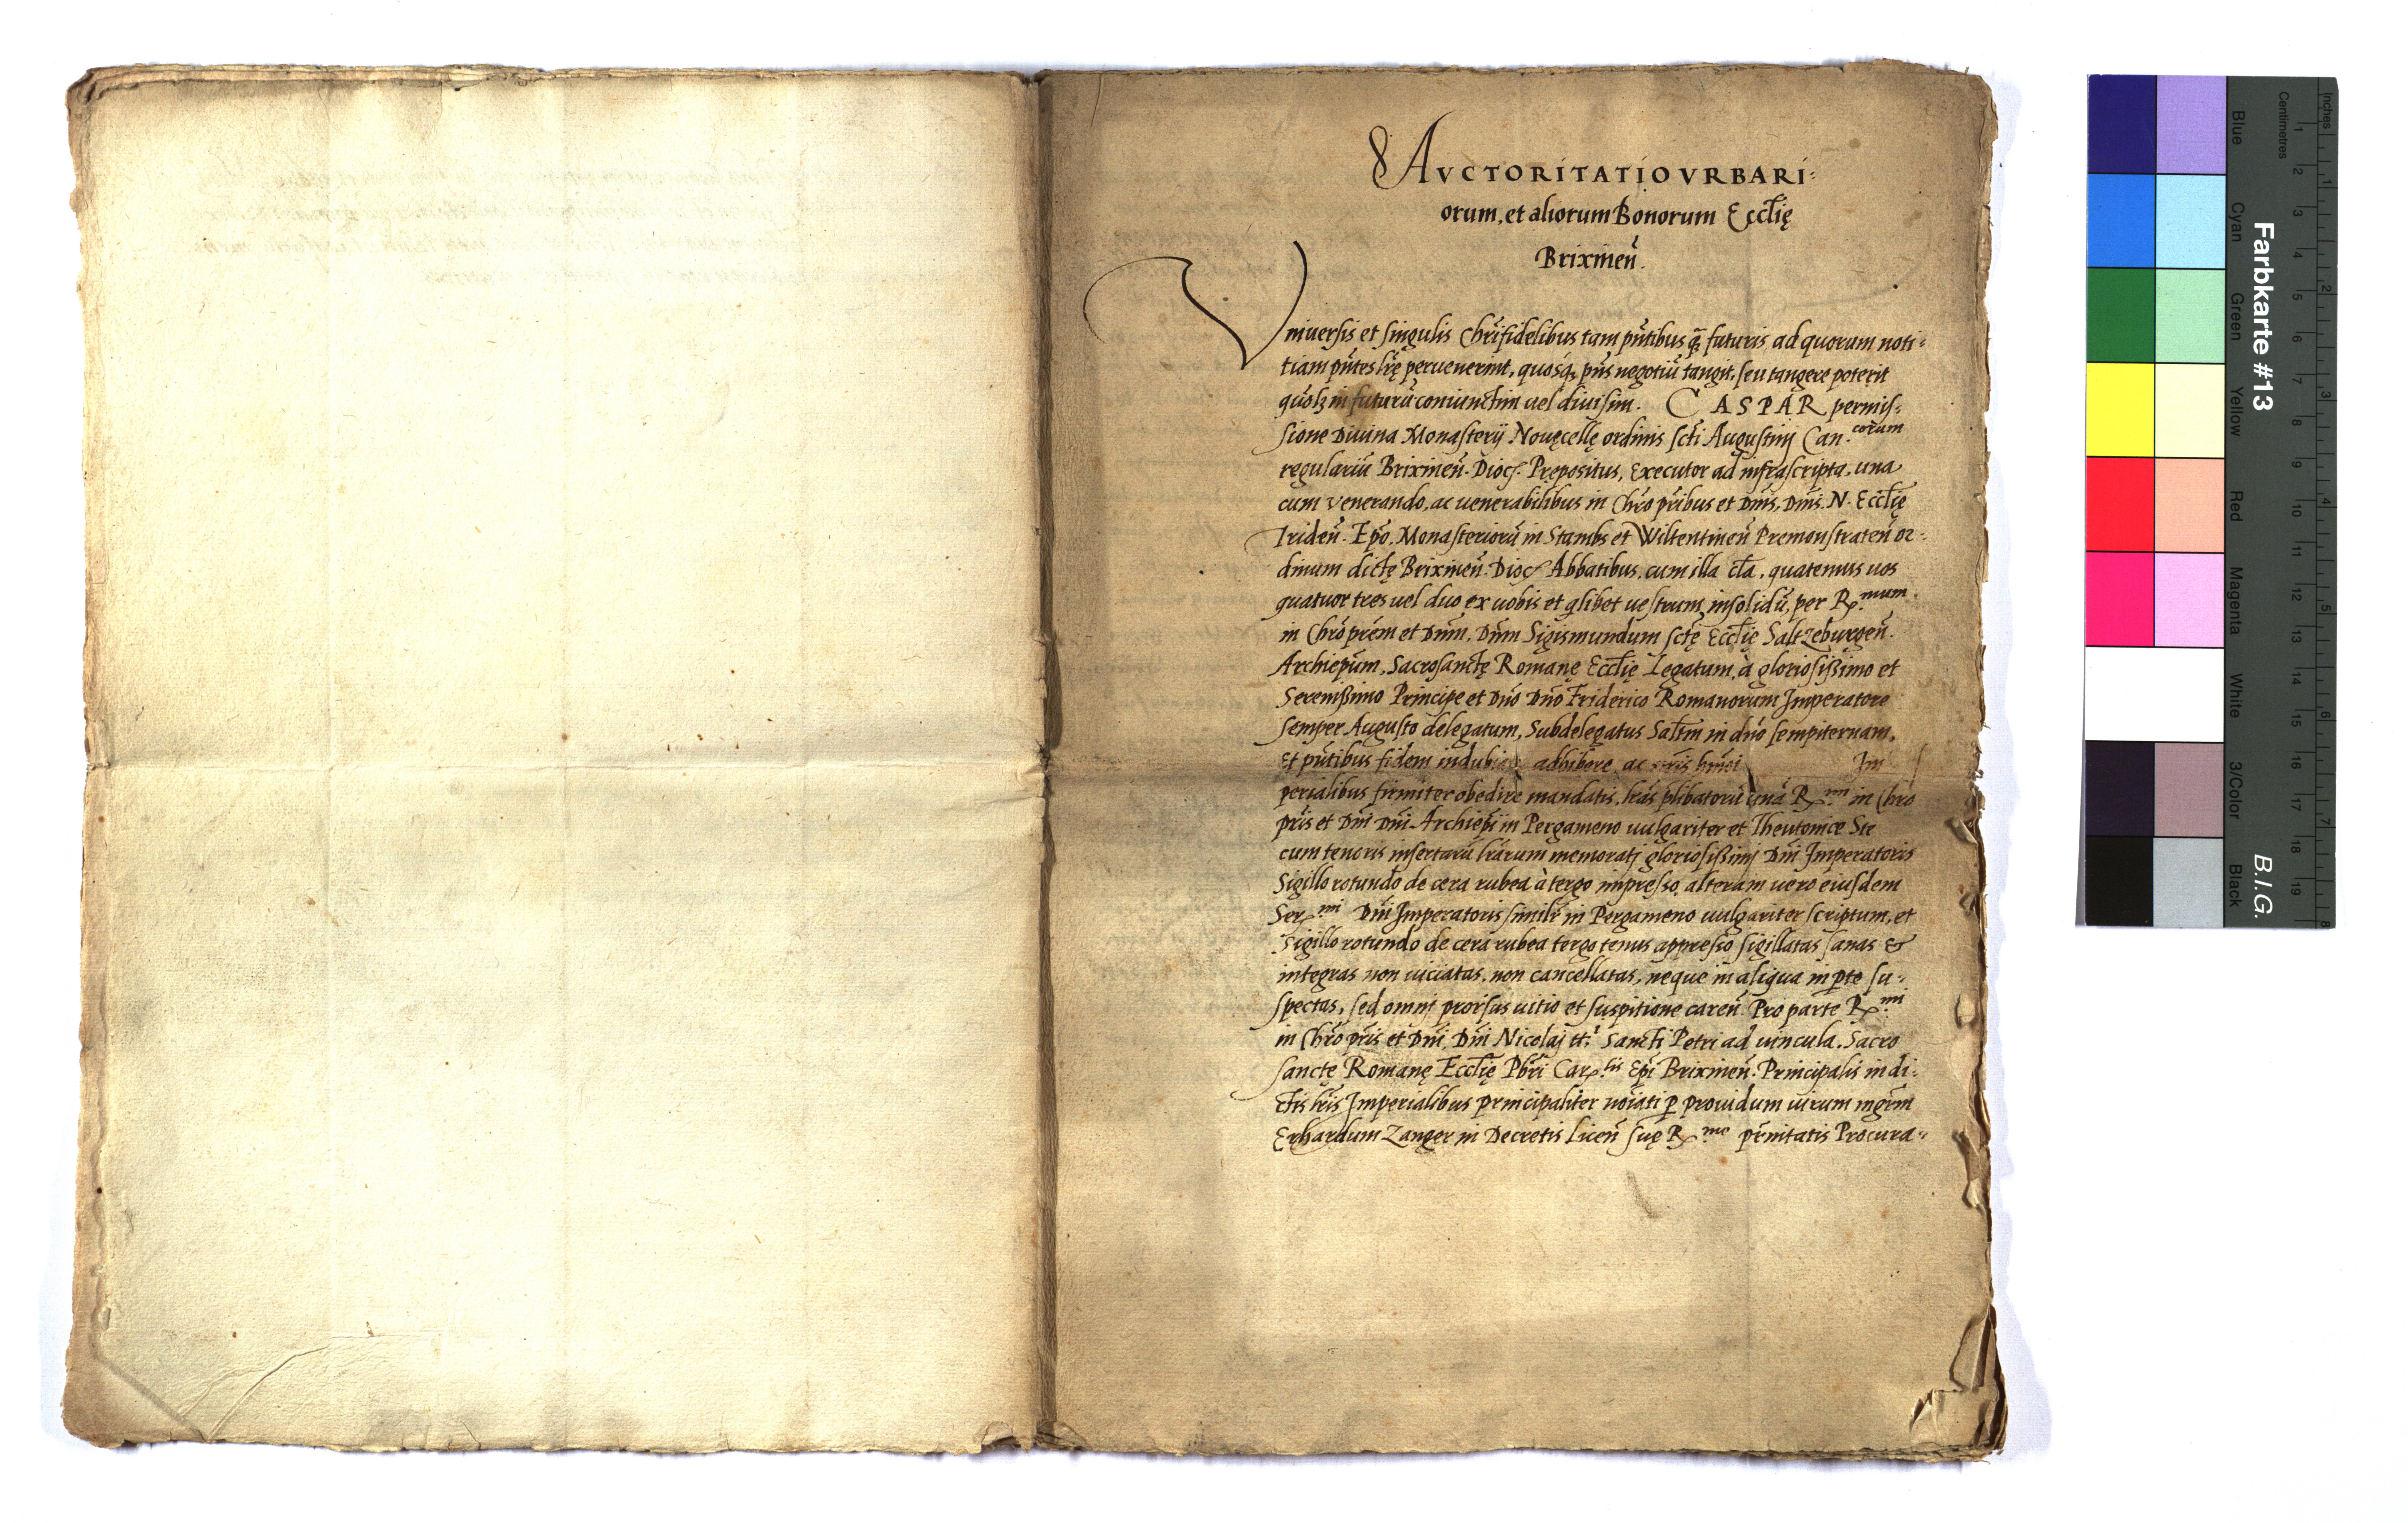 AVCTORITATIO VRBARI-
orum, et aliorum Bonorum Eccłię
Brixineñ.
Vniuersis et singulis Chrifidelibus tam pñtibus q̃ futuris ad quorum noti-
tiam pñtes lrę peruenerint, quosq, pñs negotiũ tangit, seu tangere poterit
in futurũ coniunctim uel diuisim. CASPAR permis-
sione Diuina Monasterij Nouęcellę ordinis scti Augustinj Can.corum
regulariũ Brixineñ. Dioc. Prępositus, Executor ad infrascripta, una
cum venerando, ac uenerabilibus in Chro pribus et Dnis, Dnis. N. Eccłię
Trideñ. Epo, Monasteriorũ in Stambs et Wiltentineñ Premonstrateñ or-
dinum dictę Brixineñ. Dioc. Abbatibus, cum illa cła, quatenus uos
quatuor tres uel duo ex uobis et qlibet uestrum insolidũ, per R.mum
in Chro prem et Dnm, Dnm Sigismundum sctę Eccłię Saltzeburgeñ.
Archiepum, Sacrosanctę Romanę Eccłię Legatum, à gloriosißimo et
Serenißimo Principe et Dno Dno Friderico Romanorum Imperatore
semper Augusto delegatum, Subdelegatus Saltm in dno sempiternam.
Et pñtibus fidem adhibere, ac Im
perialibus firmiter obedire mandatis, lras plibatorũ R.mi in Chro
pris et Dni Dni Archiepi in Pergameno uulgariter et Theutonice Sce
cum tenoris insertarũ lrarum memoratj gloriosißimj Dni Imperatoris
Sigillo rotundo de cera rubea à tergo impresso, alteram uero eiusdem
Ser.mi Dni Imperatoris similr in Pergameno uulgariter scriptum, et
Sigillo rotundo de cera rubea tergo tenus appresso sigillatas sanas &
integras non uiciatas, non cancellatas, neque in aliqua in pte su-
spectas, sed omnj prorsus uitio et suspitione careñ Pro parte R.mi
in Chro pris et Dni, Dni Nicolaj tt. Sancti Petri ad uincula, Sacro
sanctę Romanę Eccłię Pbri Car.lis Epi Brixineñ. Principalis in di-
ctis lris Imperialibus principaliter noiati p prouidum uirum mgrm
Erhardum Zanger in Decretis Liceñ suę R.me prnitatis Procura-
Farbkarte #13
B.I.G.
Inches
Centimetres
1 2 3 4 5 6 7 8 9 10 11 12 13 14 15 16 17 18 19
1 2 3 4 5 6 7 8
Blue
Cyan
Green
Yellow
Red
Magenta
White
3/Color
Black